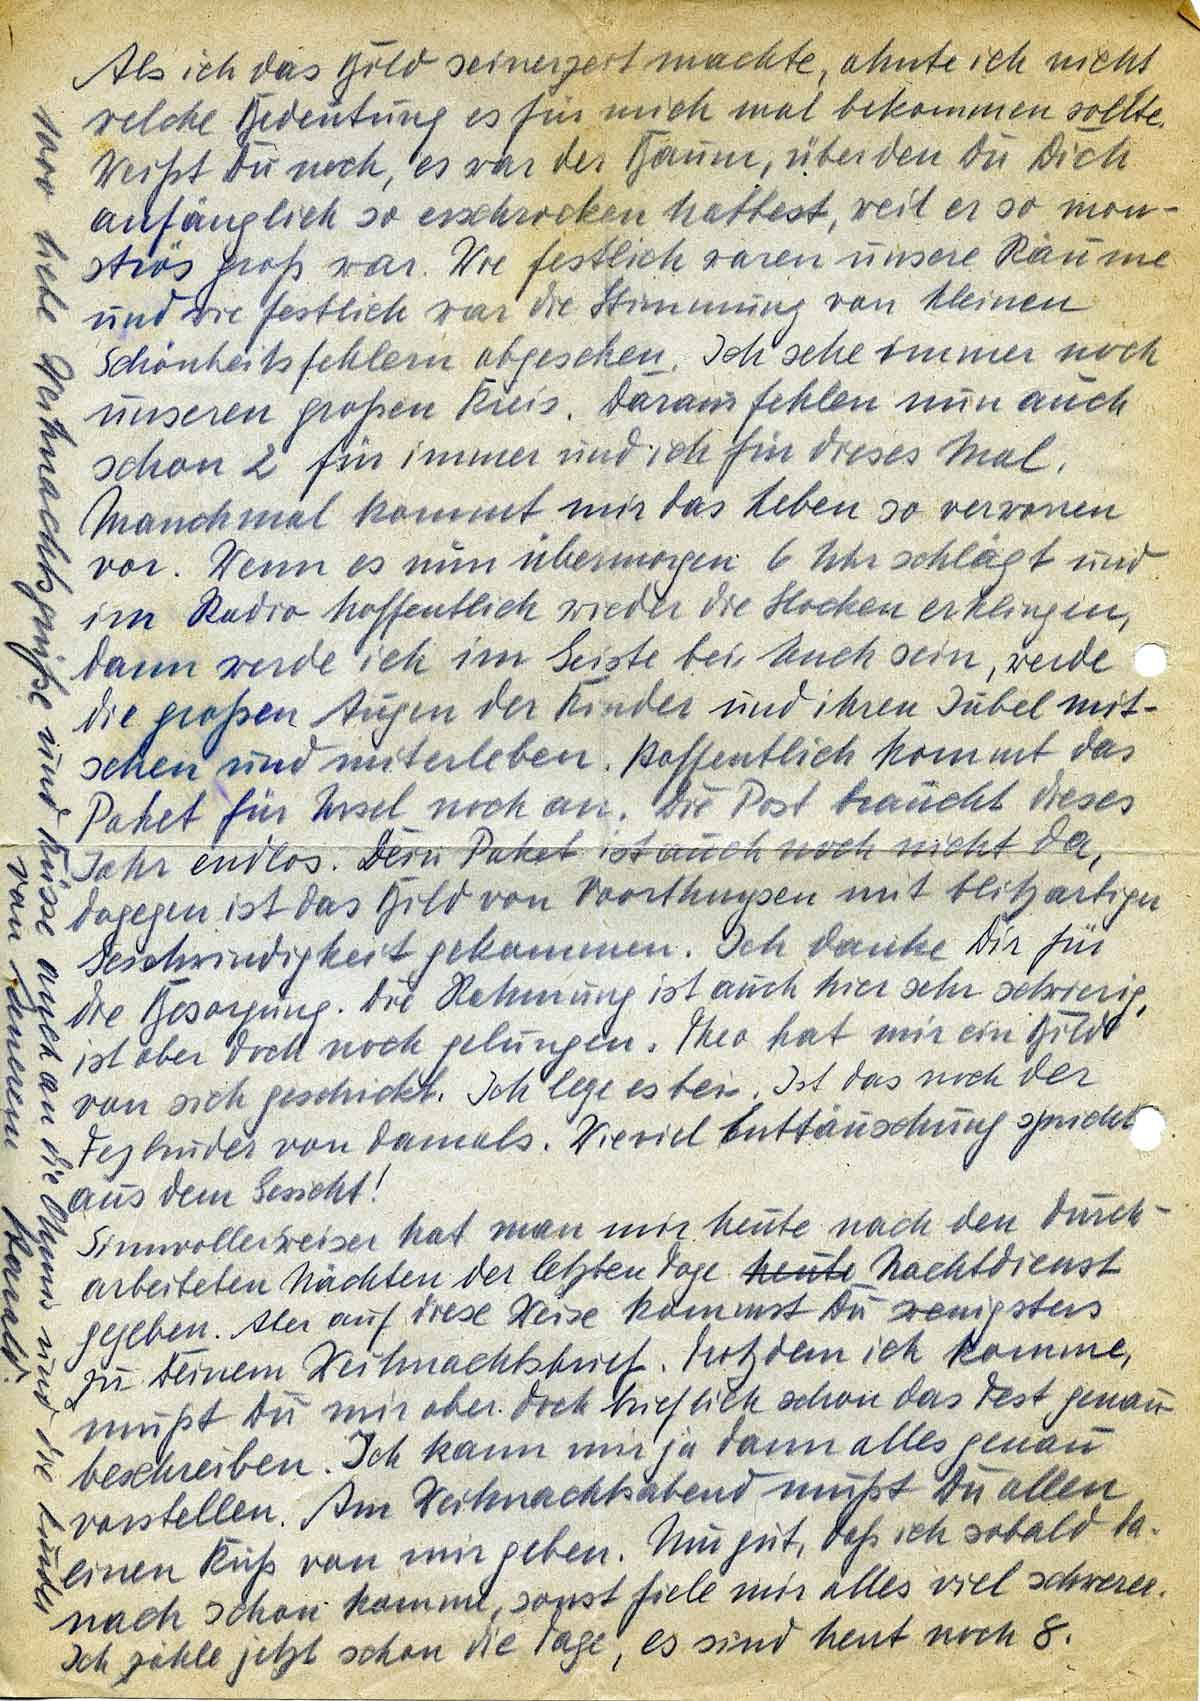 Als ich das Bild seinerzeit machte, ahnte ich nicht
welche Bedeutung es für mich mal bekommen sollte.
Weißt Du noch, es war der Baum, über den Du Dich
anfänglich so erschrocken hattest, weil er so mon-
strös groß war. Wie festlich waren unsere Räume
und wie festlich war die Stimmung von kleinen
Schönheitsfehlern abgesehen. Ich sehe immer noch
unseren großen Kreis. Daraus fehlen nun auch
schon 2 für immer und ich für dieses Mal.
Manchmal kommt mir das Leben so verworren
vor. Wenn es nun übermorgen 6 Uhr schlägt und
im Radio hoffentlich wieder die Glocken erklingen,
dann werde ich im Geiste bei Euch sein, werde
die großen Augen der Kinder und ihren Jubel mit-
sehen und miterleben. Hoffentlich kommt das
Paket für Ursel noch an. Die Post braucht dieses
Jahr endlos. Dein Paket ist auch noch nicht da,
dagegen ist das Bild von Voorthuysen mit blitzartiger
Geschwindigkeit gekommen. Ich danke Dir für
die Besorgung. Die Rahmung ist auch hier sehr schwierig,
ist aber doch noch gelungen. Theo hat mir ein Bild
von sich geschickt. Ich lege es bei. Ist das noch der
von damals. Wieviel Enttäuschung spricht
aus dem Gesicht!
Sinnvollerweiser hat man mir heute nach den durch-
arbeiteten Nächten der letzten Tage heute Nachtdienst
gegeben. Aber auf diese Weise kommst Du wenigstens
zu Deinem Weihnachtsbrief. Trotzdem ich komme,
mußt Du mir aber doch brieflich schon das Fest genau
beschreiben. Ich kann mir ja dann alles genau
vorstellen. Am Weihnachtsabend mußt Du allen
einen Kuß von mir geben. Nur gut, daß ich sobald da-
nach schon komme, sonst fiele mir alles viel schwerer.
Ich zähle jetzt schon die Tage, es sind heut noch 8.
1000 liebe Weihnachtsgrüße und Küsse auch an die Omis und die Kinder
von Deinem Harald.